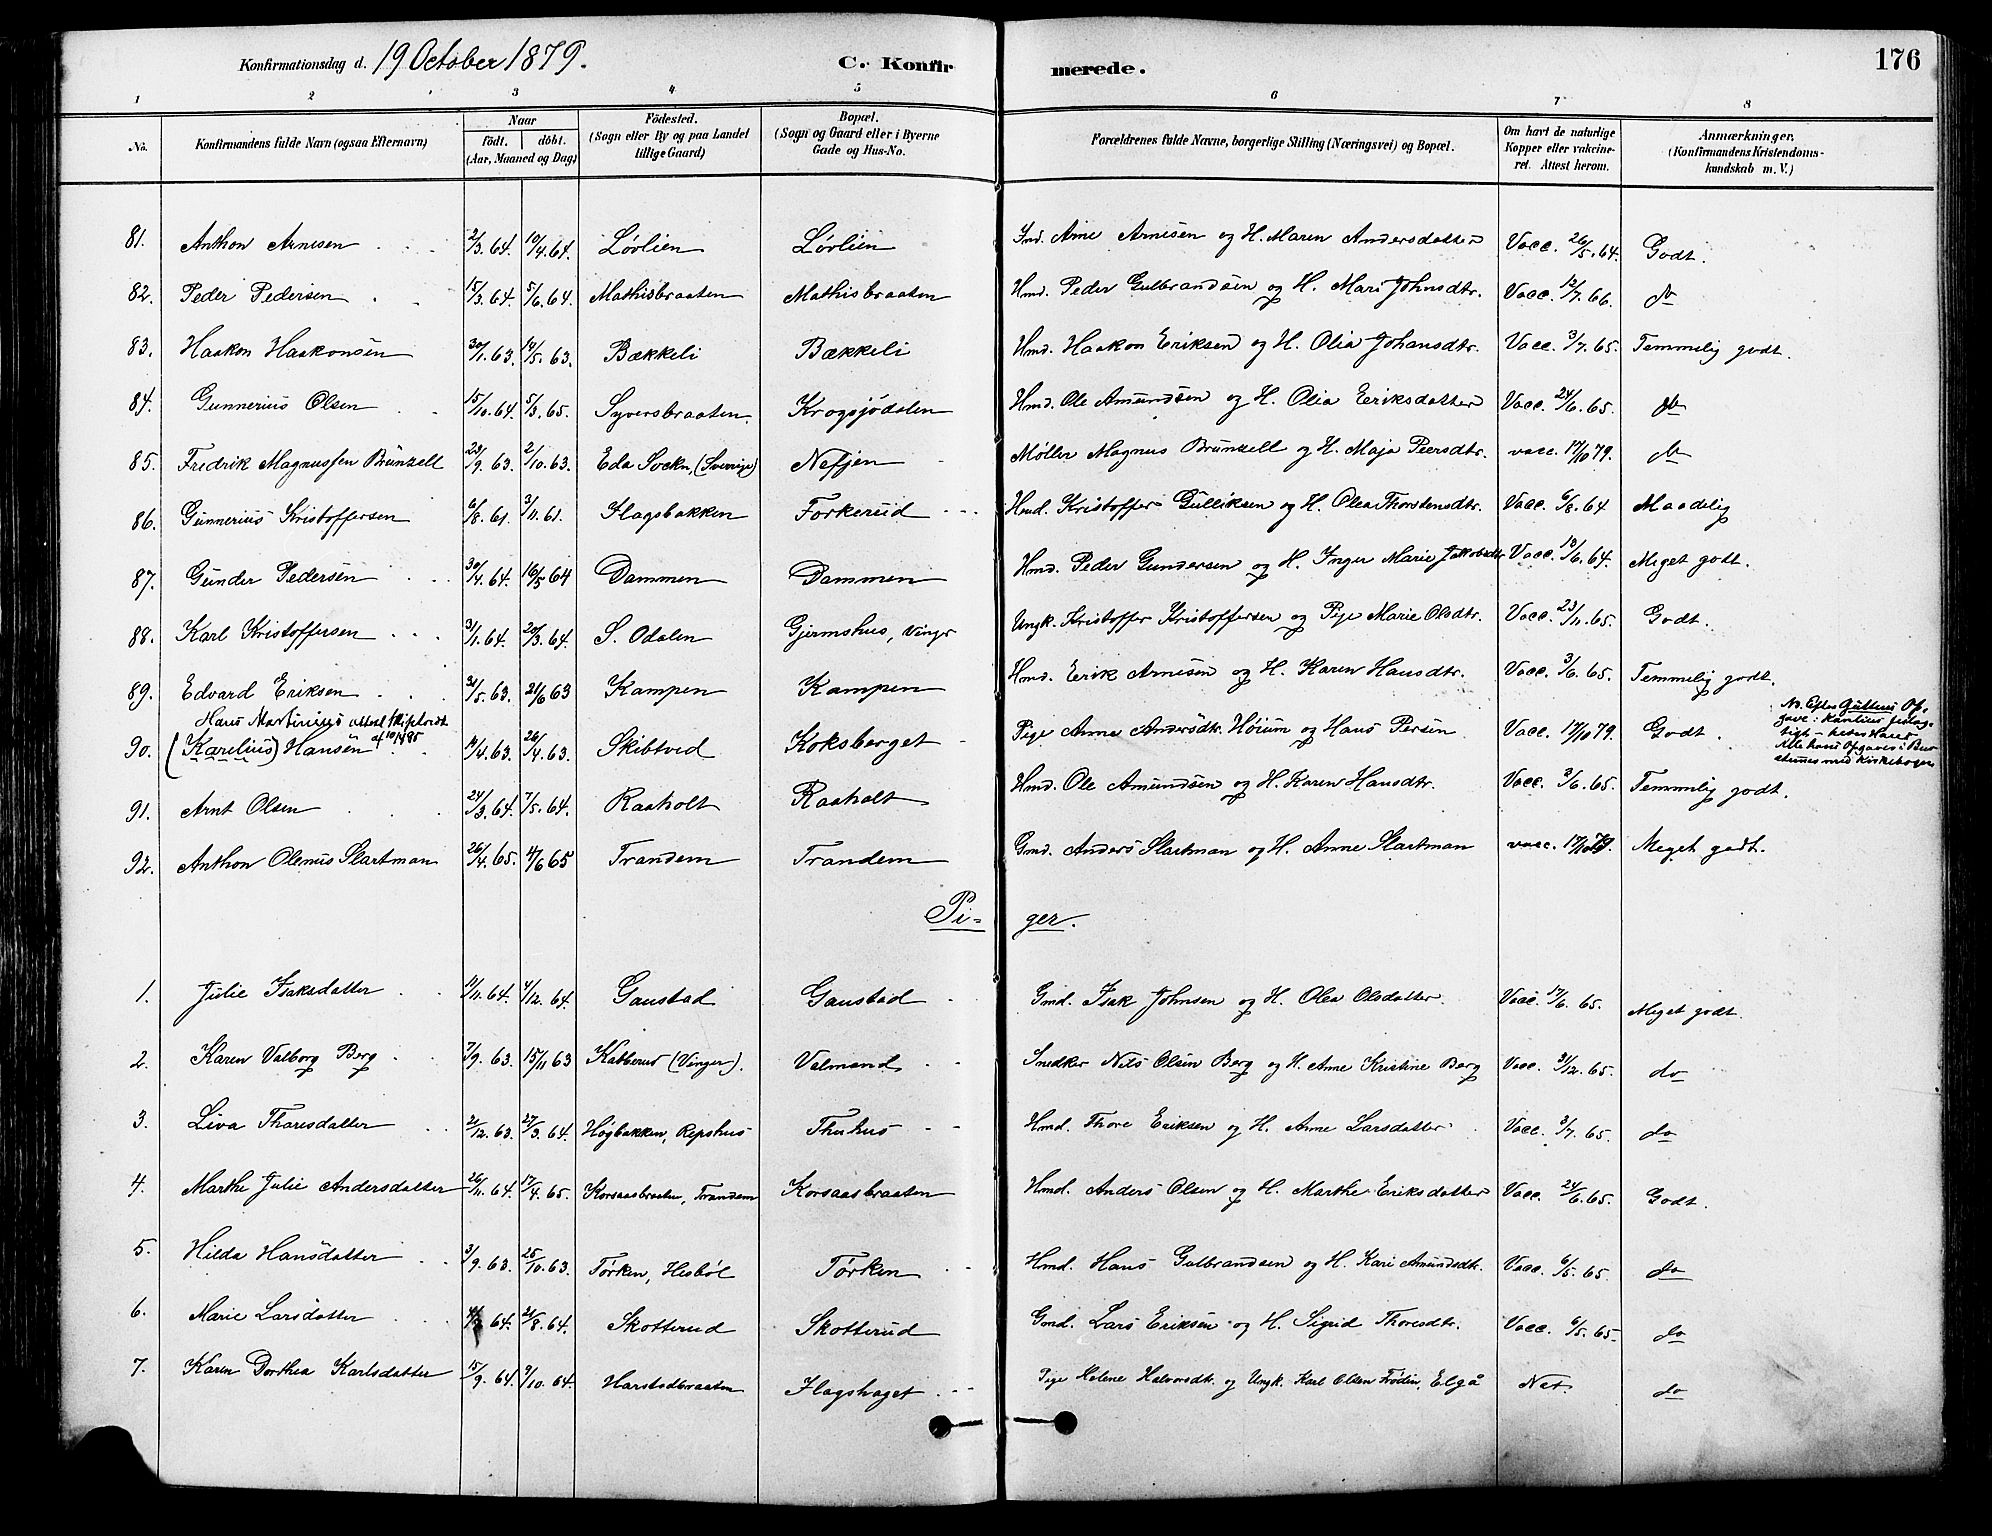 Konfirmationsdag d. 19 October 1879. C. Konfirmerede. 176
1 2 3 4 5 6 7 8
No. Konfirmandens fulde Navn (ogsaa Efternavn) Naar födt. döbt. (Aar, Maaned og Dag) Födested. (Sogn eller By og paa Landet tillige Gaard) Bopæl. (Sogn og Gaard eller i Byerne Gade og Hus-No. Forældrenes fulde Navne, borgerlige Stilling (Næringsvei) og Bopæl. Om havt de naturlige Kopper eller vakcineret. Attest herom. Anmærkninger. (Konfirmandens Kristendomskundskab m. V.)
81. Anthon Arnesen 2/3.64. 10/4.64. Lørlien Lørlien Ind. Arne Arnesen og H. Maren Andersdatter Vacc. 26/5.64. Godt.
82. Peder Pedersen 15/3.64. 5/6.64. Mathisbraaten Mathisbraaten Hmd. Peder Gulbrandsen og H. Mari Johnsdtr. Vacc. 12/7.66. do
83. Haakon Haakonsen 30/1.63. 14/5.63. Bækkeli Bækkeli Hmd. Haakon Eriksen og H. Olia Johansdtr. Vacc. 3/7.65. Temmelig godt.
84. Gunnerius Olsen 15/10.64. 5/3.65. Syversbraaten. Krogsjödalen Hmd. Ole Amundsen og H. Olia Eeriksdatter Vacc. 24/6.65. do
85. Fredrik Magnussen Brunzell 23/9.63. 2/10.63. Eda Sockn, (Sverige) Nefjen Møller Magnus Brunzell og H. Maja Peersdtr. vacc. 17/10 79. do
86. Gunnerius Kristoffersen 6/8.61. 3/11.61. Flagsbakken Forkerud Hmd. Kristoffer Gulliksen og H. Olea Thorstensdtr. Vacc. 6/8.64 Maadelig
87. Gunder Pedersen 30/4.64. 16/5 64 Dammen Dammen Hmd. Peder Gundersen og H. Inger Marie Jakobsdtr. Vacc. 18/6.64. Meget godt.
88. Karl Kristoffersen 31/1.64. 20/3.64. S. Odalen Gjermshus, Vinger Ungk. Kristoffer Kristoffersen og Pige Marie Olsdtr. Vacc. 23/11.65. Godt.
89. Edvard Eriksen 31/5.63. 21/6 63 Kampen Kampen Hmd. Erik Arnesen og H. Karen Hansdtr. Vacc. 3/6.65. Temmelig godt.
Hans Martinius attest Skiptvedt af 10/4 95
90. (Karelius) Hansen 11/4.63. 26/4.63. Skibtved Koksberget Pige Anne Andersdtr. Høium og Hans Persen Vacc. 17/10 79. Godt.
No. Efter Guttens Opgave:
91. Arnt Olsen 24/3.64. 7/5.64. Raaholt Raaholt Hmd. Ole Amundsen og H. Karen Hansdtr. Vacc. 3/6.65. Temmelig godt.
92. Anthon Olenus Slartman 26/4.65. 4/6 65 Trandem Trandem Gmd. Anders Slartman og H. Anne Slartman vacc. 17/10 79. Meget godt.
Pi=ger.
1. Julie Isaksdatter 11/11.64. 4/12.64. Gaustad Gaustad Gmd. Isak Johnsen og H. Olea Olsdatter. Vacc. 17/6.65. Meget godt.
2. Karen Valborg Berg 7/9.63. 15/11 63 Katterud (Vinger). Valmand Snedker Nils Olsen Berg og H. Anne Kristine Berg Vacc. 31/12.65. do
3. Liva Thoresdatter 21/12.63. 27/3.64. Høgbakken, Repshus Thuhus Hmd. Thore Eriksen og H. Anne Larsdatter Vacc. 3/7.65. do
4. Marthe Julie Andersdatter 26/11.64. 17/4.65. Korsaasbraaten, Trandem Korsaasbraaten Hmd. Anders Olsen og H. Marthe Eriksdatter Vacc. 24/6.65. Godt.
5. Hilda Hansdatter 3/9.63. 25/10.63. Tørken, Hesbøl Tørken Hmd. Hans Gulbrandsen og H. Kari Amundsdtr. Vacc. 6/5.65. do
6. Marie Larsdatter 64. 21/8.64. Skotterud Skotterud Gmd. Lars Eriksen og H. Sigrid Thoresdtr. Vacc. 6/5.65. do
7. Karen Dorthea Karlsdatter 15/9.64. 9/10.64. Harstadbraaten Flagshaget Pige Helene Halvorsdtr. og Ungk. Karl Olsen Frødin, Elgå Nat. do